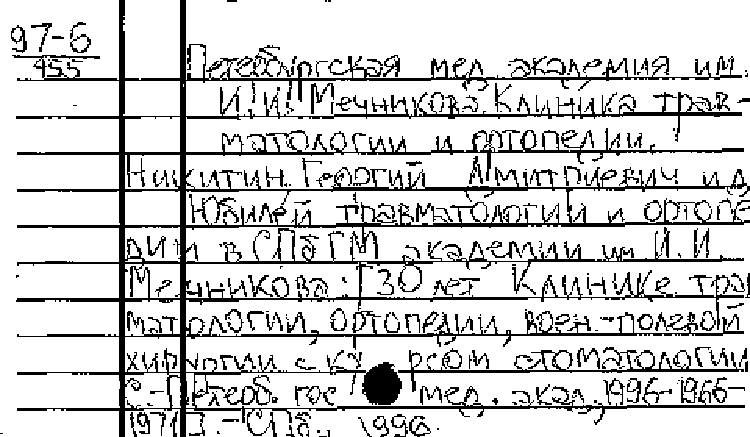 97-6
455
Петербургская мед. академия им.
И.И. Мечникова. Клиника трав-
матологии и ортопедии.
Никитин Георгий Дмитриевич и д
Юбилей травматологии и ортопе
дии в СПбГМ академии им. И.И.
Мечникова: [30 лет Клинике тра
матологии, ортопедии, воен.-полевой
хирургии с курсом стоматологии
С.-Петерб. гос. мед. акад., 1996-1966-
1971]. - СПб., 1996.